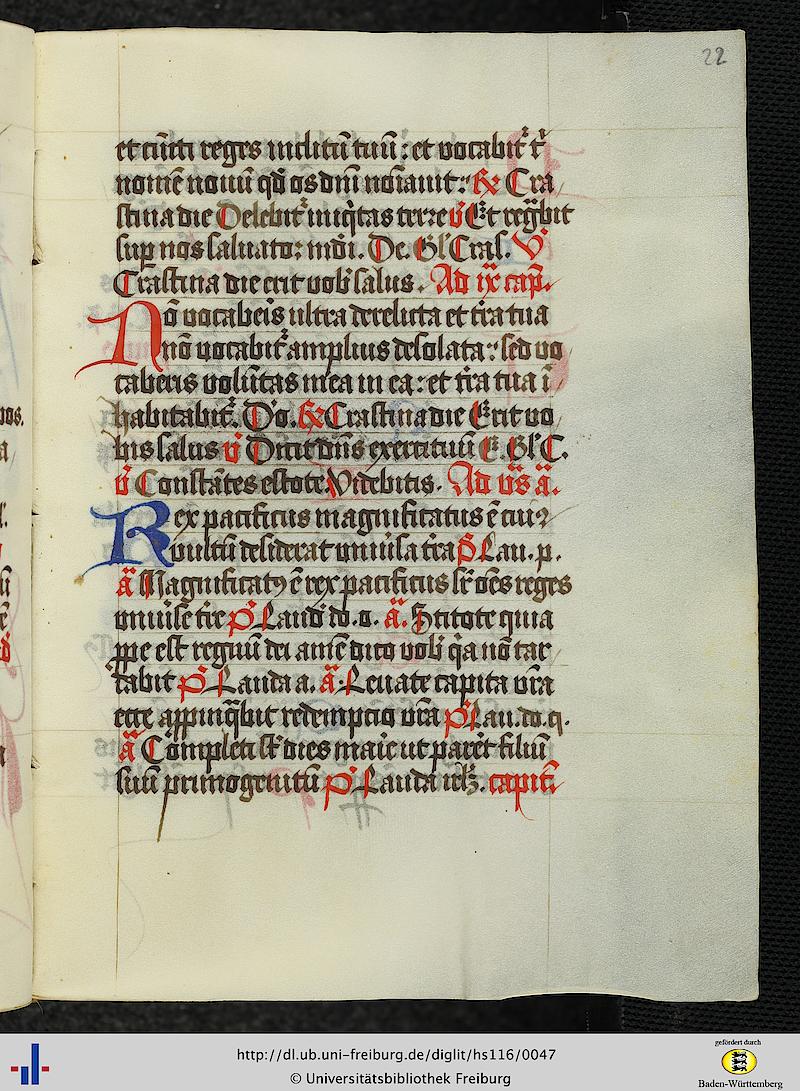 22
et cūcti reges inclitū tuū : et vocabit᷑ t᷑
nomē nouū qd̄ os dn̄i noīauit : R̶ Cra
stina die Delebit᷑ iniq̇tas terre v̄ Et regͣbit
sup nos saluator mdi . De . Gl Cras . V̄
Crastina die erit vob̄ salus . Ad ix cap .
Nō vocabeis ultra derelicta et t̄ra tua
nō vocabit᷑ amplius desolata : sed vo
caberis volūtas mea in ea : et t̄ra tua ī
habitabit᷑ . D'o . R̶ Crastina die Erit vo
bis salus v̄ Dicit dn̄s exercituū E . Gl' C .
v̄ Constātes estote Videbitis . Ad vs̄ ā .
Rex pacificus magnificatus ē cuiꝰ
vultū desiderat uniūsa t̄ra p̄s Lau . p .
ā Magnificatꝰ ē rex pacificus sr̄ oēs reges
uniuīse t̄re p̄s Laud do . o . ā . Scitote quia
ꝓpe est regnū dei amē dico vob̄ qͣ nō tar
dabit p̄s Lauda a . ā . Leuate capita vr̄a
ecce appinqͣbit redempcio vr̄a p̄s Lau . do . q .
ā Completi st̄ dies marie ut paret̄ filiū
suū primogenitū p̄s Lauda irl̄z . capit̄
pos .
http://dl.ub.uni-freiburg.de/diglit/hs116/0047
© Universitätsbibliothek Freiburg
gefördert durch
Baden-Württemberg